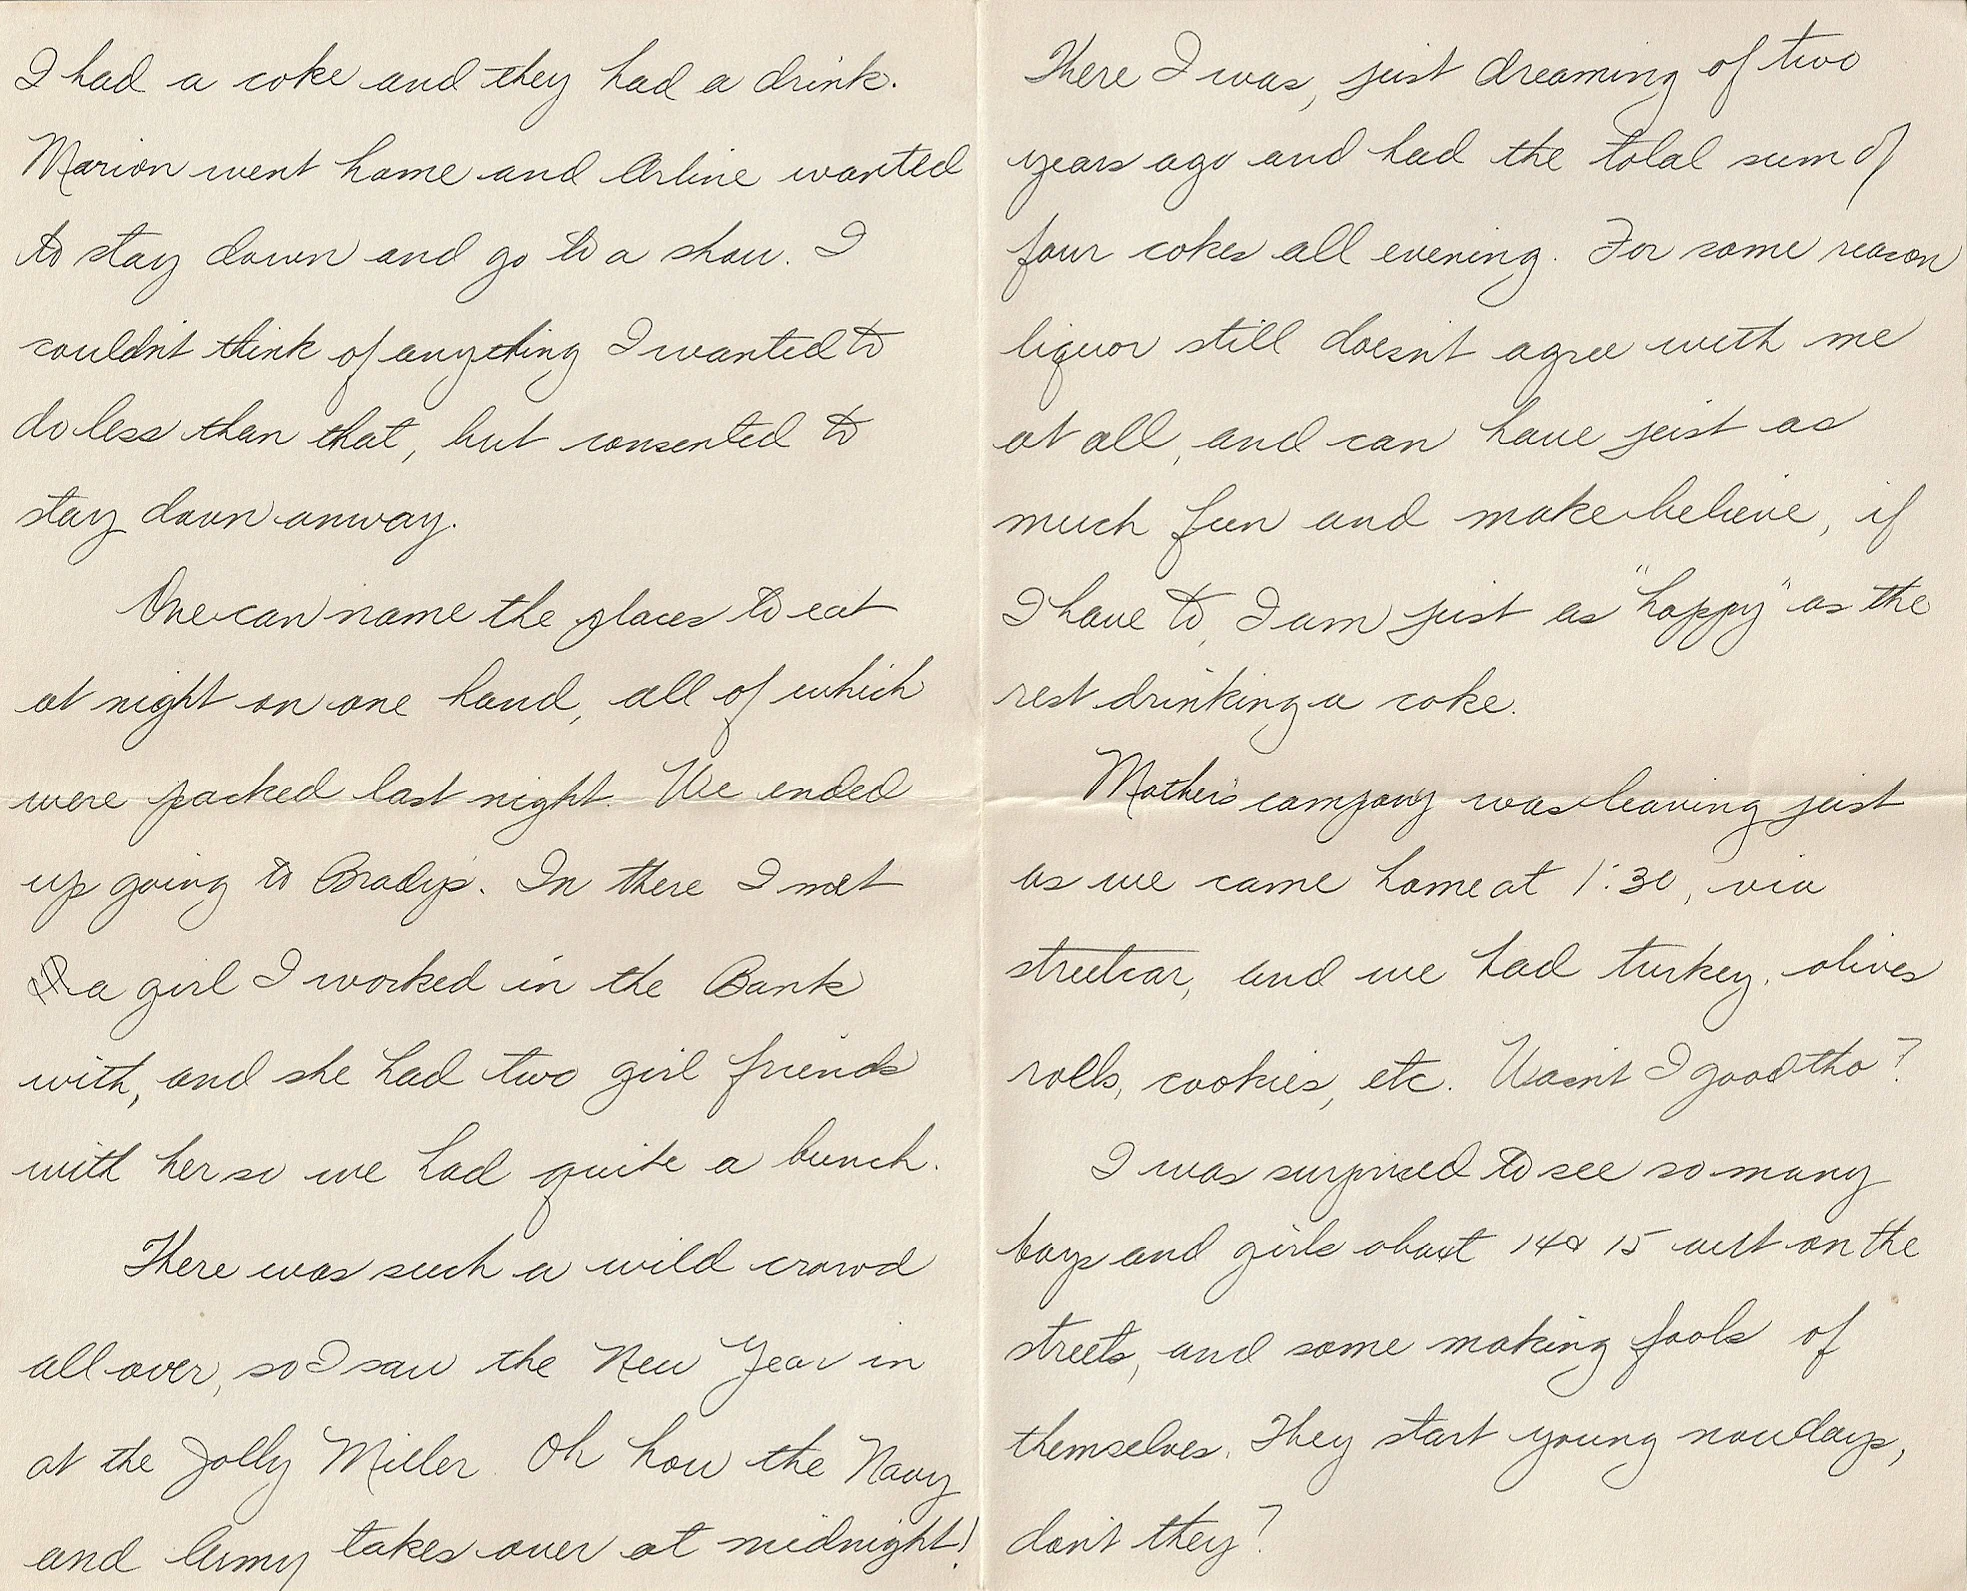 I had a coke and they had a drink.
Marion went home and Arline wanted
to stay down and go to a show. I
couldn't think of anything I wanted to
do less than that, but consented to
stay down anway.
One can name the places to eat
at night on one hand, all of which
were packed last night. We ended
up going to Brady's. In there I met
a girl I worked in the Bank
with, and she had two girl friends
with her so we had quite a bunch.
There was such a wild crowd
all over, so I saw the New Year in
at the Jolly Miller. Oh how the Navy
and Army takes over at midnight!
There I was, just dreaming of two
years ago and had the total sum of
four cokes all evening. For some reason
liquor still doesn't agree with me
at all, and can have just as
much fun and make believe, if
I have to, I am just as "happy" as the
rest drinking a coke.
Mother's company was leaving just
as we came home at 1:30, via
streetcar, and we had turkey, olives
rolls, cookies, etc. Wasn't I good tho?
I was surprised to see so many
boys and girls about 14 & 15 out on the
streets, and some making fools of
themselves. They start young nowdays,
don't they?